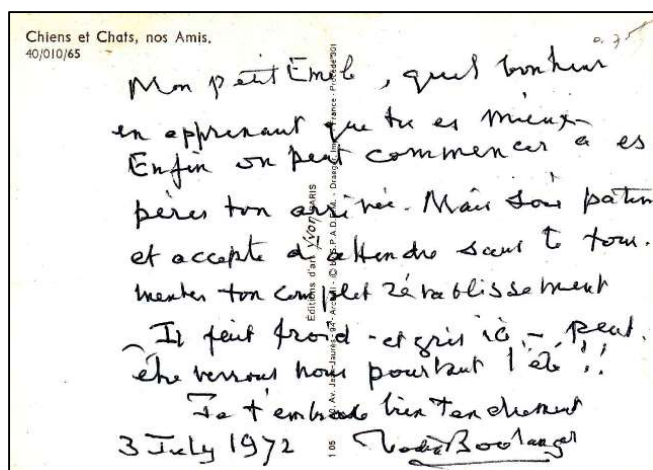 Chiens et Chats, nos Amis.
40/010/65
Mon petit Emile, quel bonheur
en apprenant que tu es mieux -
Enfin on peut commencer à es
pérer ton arrivée. Mais sois patient
et accepte d'attendre sans te tour-
menter ton complet rétablissement
Il fait froid - et gris ici, - peut-
être verrons nous pourtant l'été !!
Je t'embrasse bien tendrement
3 July 1972 Nadia Boulanger
Éditions d'art Yvon PARIS
Av. Jean-Jaurès - 94 - Arcueil - © by S.P.A.D.E.M. - Draeger Imp. France - Procédé 301
1 05